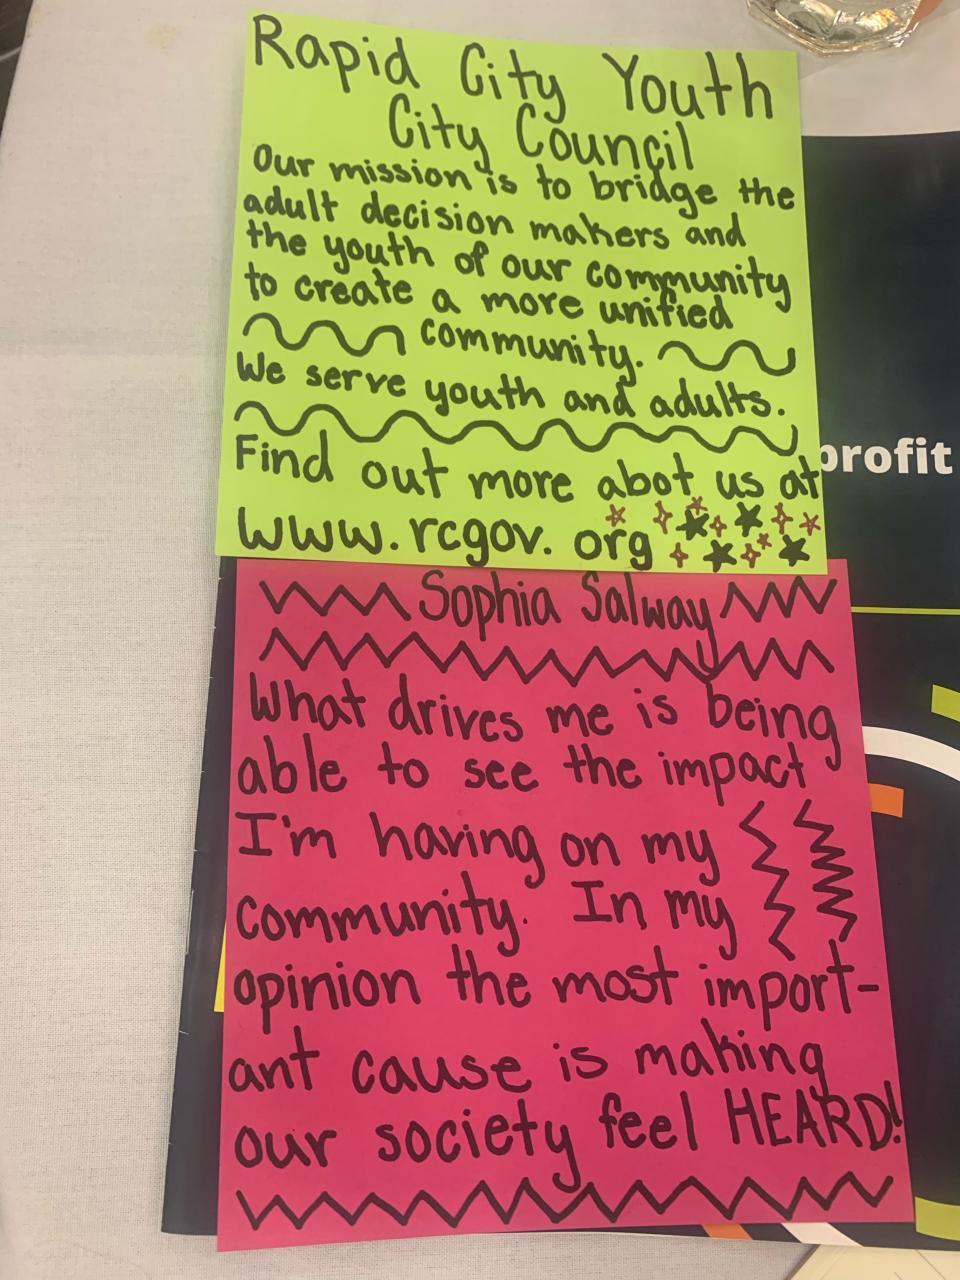 Rapid City Youth
City Council
Our mission is to bridge the
adult decision makers and
the youth of our community
to create a more unified
community.
We serve youth and adults.
Find out more abot us at
www.rcgov.org
profit
Sophia Salway
What drives me is being
able to see the impact
I'm having on my
community. In my
opinion the most import-
ant cause is making
our society feel HEARD!